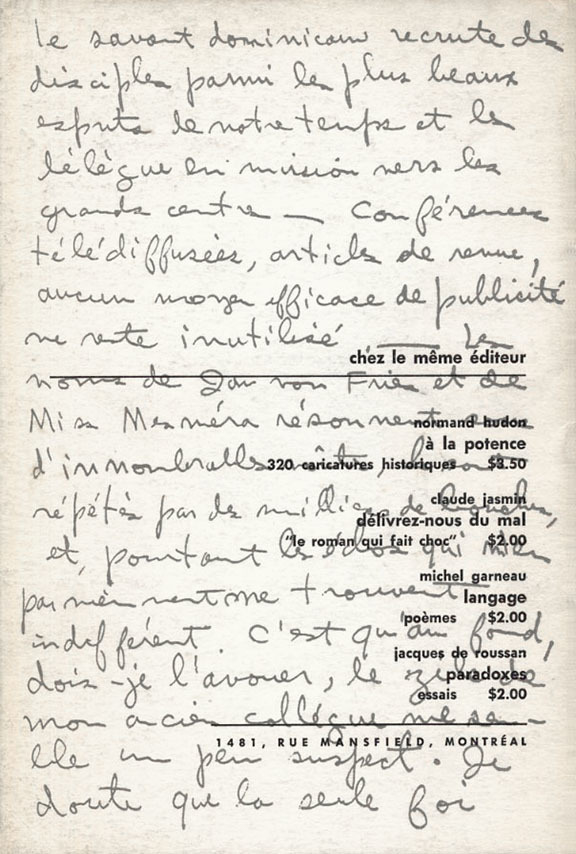 le savant dominicain recrute des
disciples parmi les plus beaux
esprits de notre temps et les
délègue en mission vers les
grands centres — Conférences
télédiffusées, articles de revue,
aucun moyen efficace de publicité
ne reste inutilisé — Les
chez le même éditeur
noms de Jan von Fries et de
Miss Mesméra résonnent
normand hudon
à la potence
d'innombrables
320 caricatures historiques $3.50
claude jasmin
répétés par des milliers de bouches,
délivrez-nous du mal
"le roman qui fait choc" $2.00
et, pourtant les échos qui m'en
michel garneau
parviennent me trouvent
langage
poèmes $2.00
indifférent. C'est qu'au fond,
jacques de roussan
dois-je l'avouer, le zèle de
paradoxes
essais $2.00
mon ancien collègue me sem-
1481, RUE MANSFIELD, MONTRÉAL
ble un peu suspect. Je
doute que la seule foi